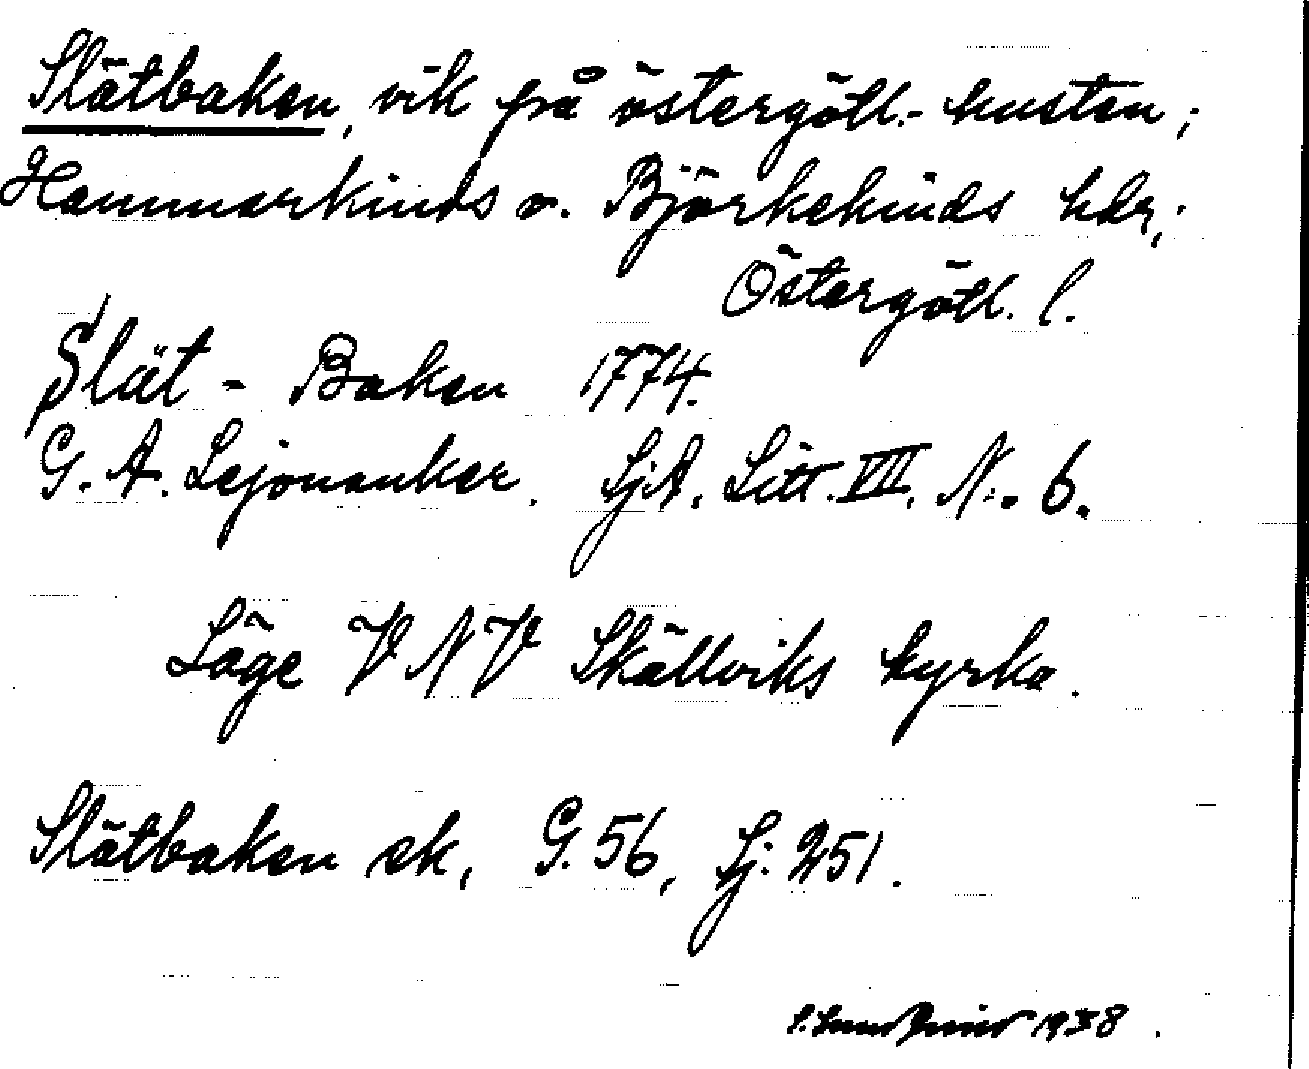 Slätbaken, vik på östergötl.- kusten;
Hammarkinds o. Björkekinds hdr,;
Östergötl. l.
Slät - Baken 1774.
G. A. Lejonanker. SjA. Litt. VIII, N:. 6.
Läge VNV Skällviks kyrka.
Slätbaken ek, G. 56, Sj. 251.
1938.